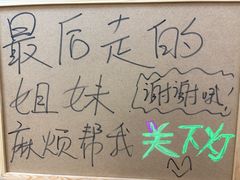 最后走的
姐妹 谢谢哦
麻烦帮我关下灯